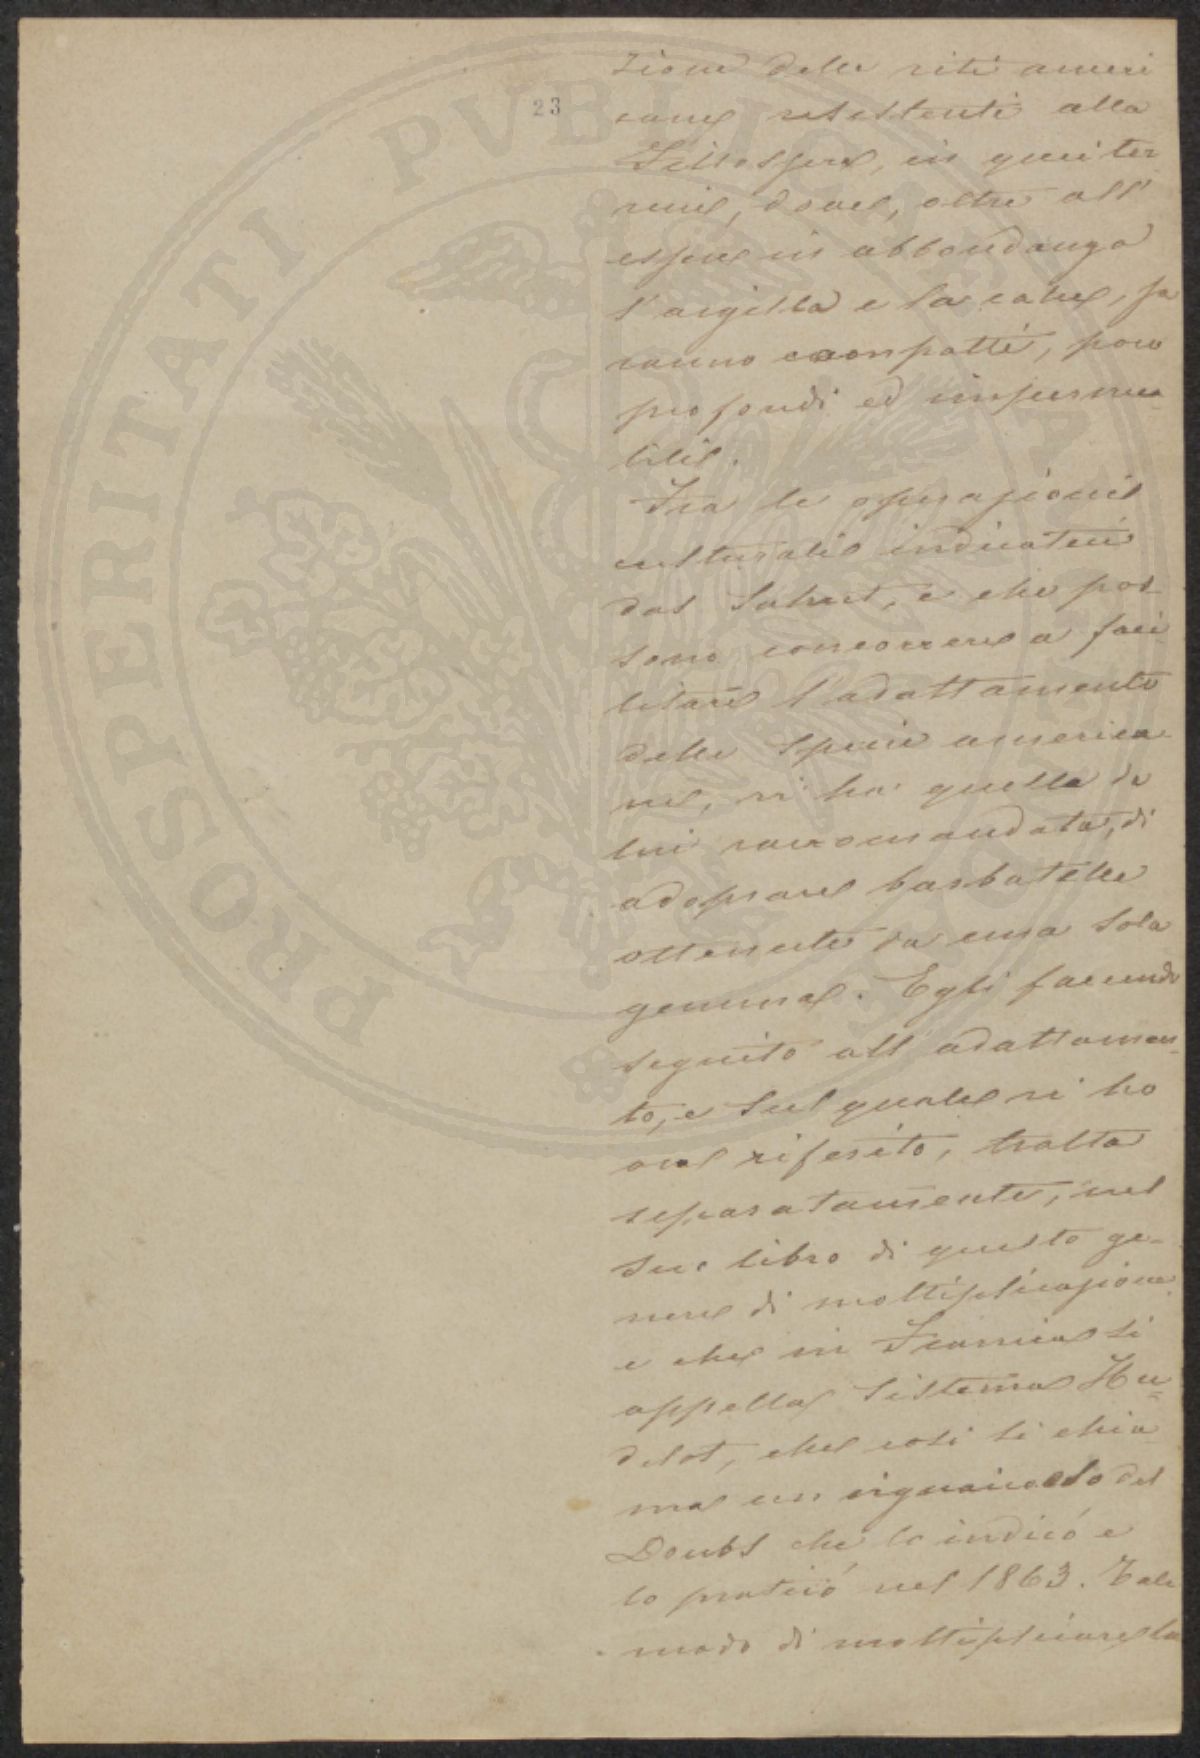 23
zione delle viti ameri
cane resistenti alla
Fillossera, in quei ter
reni, dove, oltre all'
essere in abbondanza
l'argilla e la calce, sa
ranno compatti, poco
profondi ed impermea
bili.
Fra le operazioni
culturali indicateci
dal Sahut, e che pos
sono concorrere a faci
litare l'adattamento
delle specie america
ne, vi ha quella da
lui raccomandata, di
adoprare barbatelle
ottenute da una sola
gemma. Egli facendo
seguito all'adattamen-
to, e sul quale vi ho
ora riferito, tratta
separatamente, nel
suo libro di questo ge-
nere di moltiplicazione
e che in Francia si
appella Sistema Hu=
delot, che così si chia
ma un vignaiuolo del
Doubs che lo indicó e
lo praticó nel 1863. Tale
modo di moltiplicare la
PROSPERITATI PVBLICAE